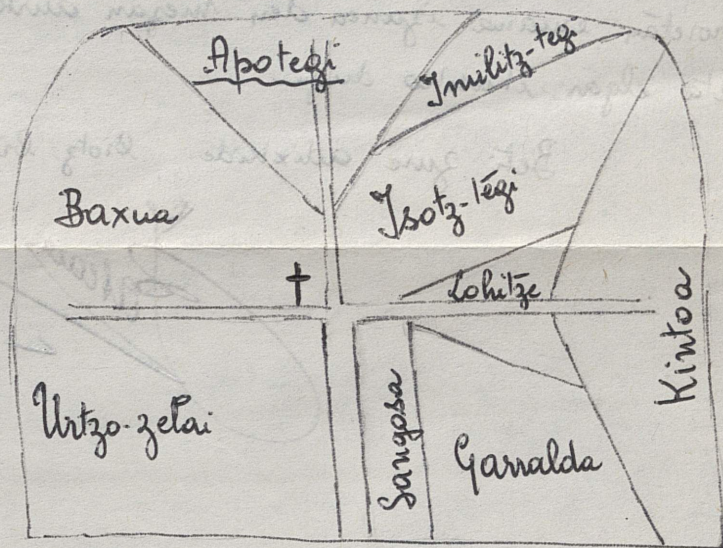 Apotegi
Imilitz-tegi
Baxua
Isotz-tégi
Lohitze
Kintoa
Urtzo-zelai
Sangosa
Garralda